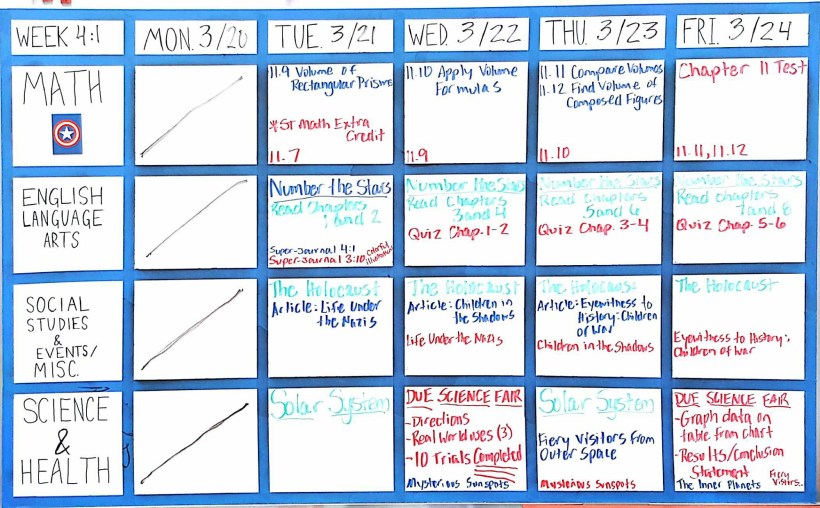 WEEK 4:1
MON. 3/20
TUE. 3/21
WED. 3/22
THU. 3/23
FRI. 3/24
MATH
11.9 Volume of
Rectangular Prisms
*ST Math Extra
Credit
11.7
11.10 Apply Volume
Formulas
11.9
11.11 Compare Volumes
11.12 Find Volume of
Composed Figures
11.10
Chapter 11 Test
11.11, 11.12
ENGLISH
LANGUAGE
ARTS
Number the Stars
Read Chapters
1 and 2
Super-Journal 4:1
Super-Journal 3:10 Colorful
Illustration
Number the Stars
Read Chapters
3 and 4
Quiz Chap. 1-2
Number the Stars
Read Chapters
5 and 6
Quiz Chap. 3-4
Number the Stars
Read Chapters
7 and 8
Quiz Chap. 5-6
SOCIAL
STUDIES
&
EVENTS/
MISC.
The Holocaust
Article: Life Under
the Nazis
The Holocaust
Article: Children in
the Shadows
Life Under the Nazis
The Holocaust
Article: Eyewitness to
History: Children
of War
Children in the Shadows
The Holocaust
Eyewitness to History:
Children of War
SCIENCE
&
HEALTH
Solar System
DUE SCIENCE FAIR
-Directions
-Real World uses (3)
-10 Trials Completed
Mysterious Sunspots
Solar System
Fiery Visitors from
Outer Space
Mysterious Sunspots
DUE SCIENCE FAIR
-Graph data on
table from chart
-Results/Conclusion
Statement
The Inner Planets
Fiery
Visitors..